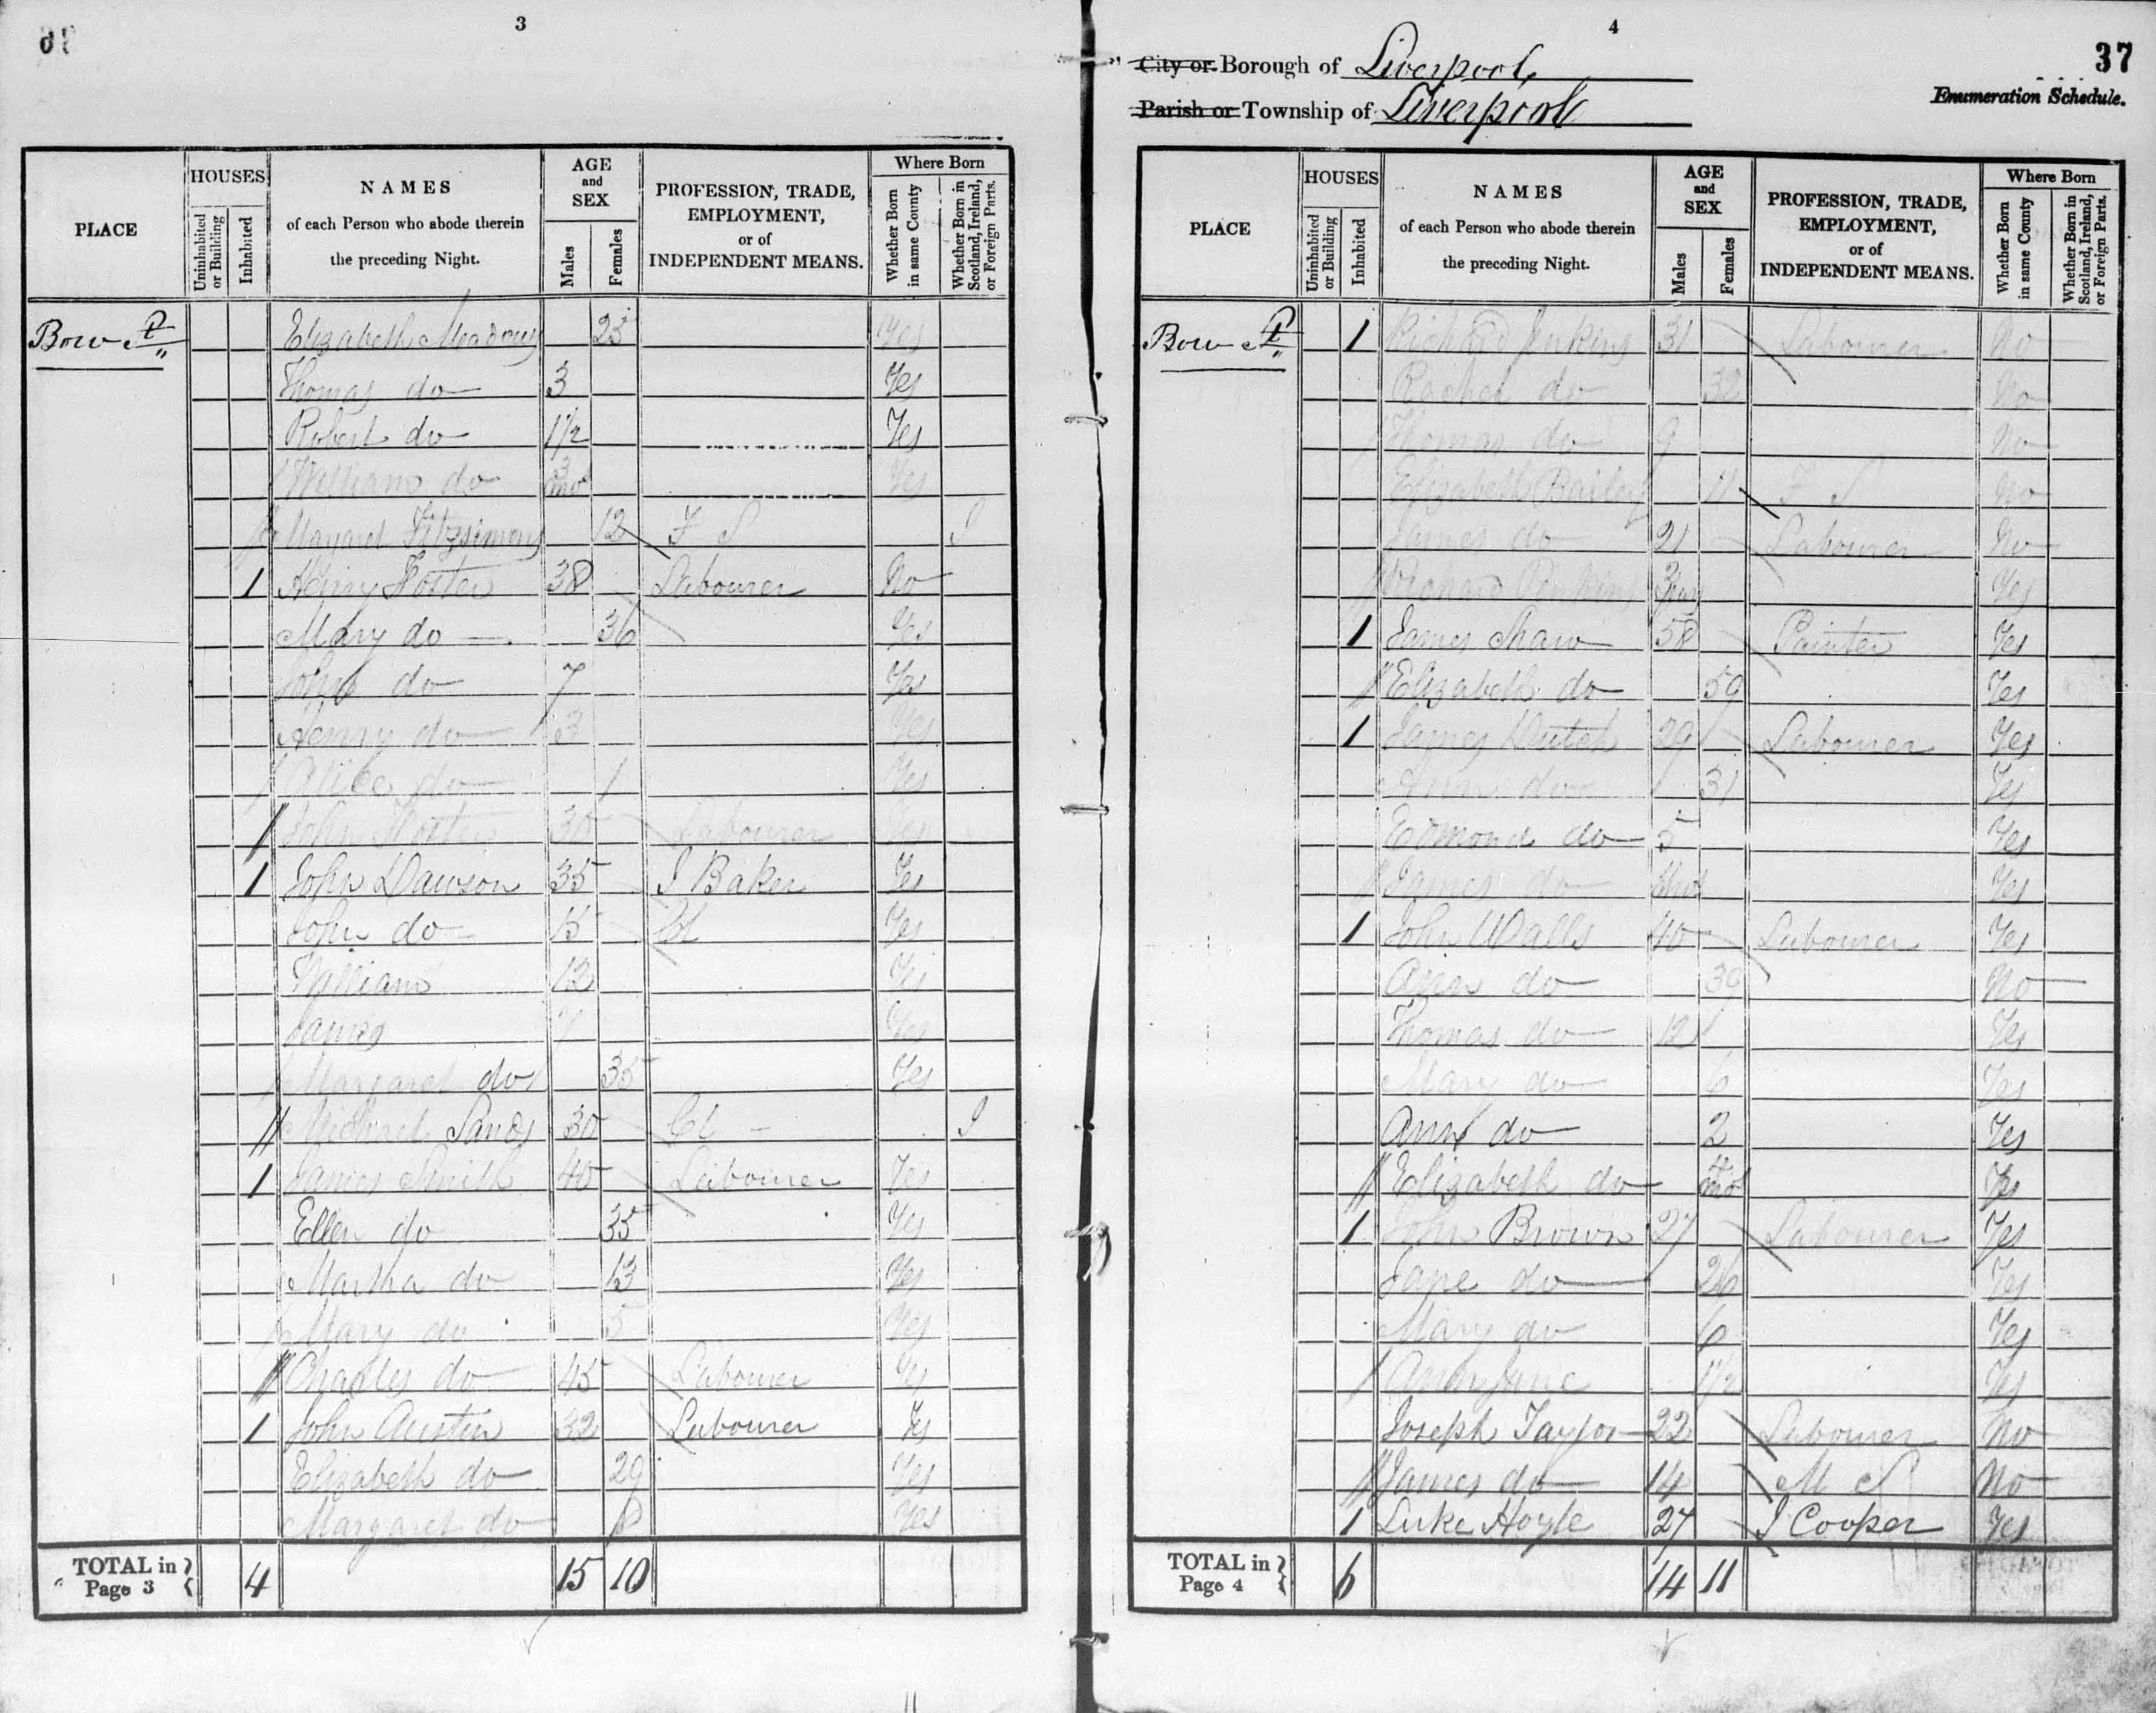 3
PLACE
HOUSES
Uninhabited or Building
Inhabited
NAMES
of each Person who abode therein
the preceding Night.
AGE
and
SEX
Males
Females
PROFESSION, TRADE,
EMPLOYMENT,
or of
INDEPENDENT MEANS.
Where Born
Whether Born in same County
Whether Born in Scotland, Ireland, or Foreign Parts.
Bow St Elizabeth Meadows 25 Yes
Thomas do 3 Yes
Robert do 1½ Yes
William do 3 mo Yes
Margaret Fitzsimons 12 F S I
1 Henry Foster 38 Labourer No
Mary do 36 Yes
John do 7 Yes
Henry do 3 Yes
Alice do 1 Yes
John Foster 30 Labourer Yes
1 John Dawson 35 J Baker Yes
John do 15 Cl Yes
William 12 Yes
James 7 Yes
Margaret do 35 Yes
Michael Sands 30 Cl I
1 James Smith 40 Labourer Yes
Ellen do 35 Yes
Martha do 13 Yes
Mary do 5 Yes
Charles do 45 Labourer Yes
1 John Austin 32 Labourer Yes
Elizabeth do 29 Yes
Margaret do 8 Yes
TOTAL in Page 3 4 15 10
4
37
City or Borough of Liverpool
Enumeration Schedule.
Parish or Township of Liverpool
PLACE
HOUSES
Uninhabited or Building
Inhabited
NAMES
of each Person who abode therein
the preceding Night.
AGE
and
SEX
Males
Females
PROFESSION, TRADE,
EMPLOYMENT,
or of
INDEPENDENT MEANS.
Where Born
Whether Born in same County
Whether Born in Scotland, Ireland, or Foreign Parts.
Bow St 1 Richard Jenkins 31 Labourer No
Rachel do 32 No
Thomas do 9 No
Elizabeth Bailey 11 F S No
James do 21 Labourer No
Richard 3 Yes
1 James Shaw 58 Painter Yes
Elizabeth do 59 Yes
1 James Dutch 29 Labourer Yes
Ann do 31 Yes
Edmond do 5 Yes
James do Yes
1 John Walls 40 Labourer Yes
Ann do 39 No
Thomas do 12 Yes
Mary do 6 Yes
Ann do 2 Yes
Elizabeth do mo Yes
1 John Brown 27 Labourer Yes
Jane do 26 Yes
Mary do 6 Yes
Ann Jane 1½ Yes
Joseph Taylor 22 Labourer No
James do 14 M S No
1 Luke Hoyle 27 J Cooper Yes
TOTAL in Page 4 6 14 11